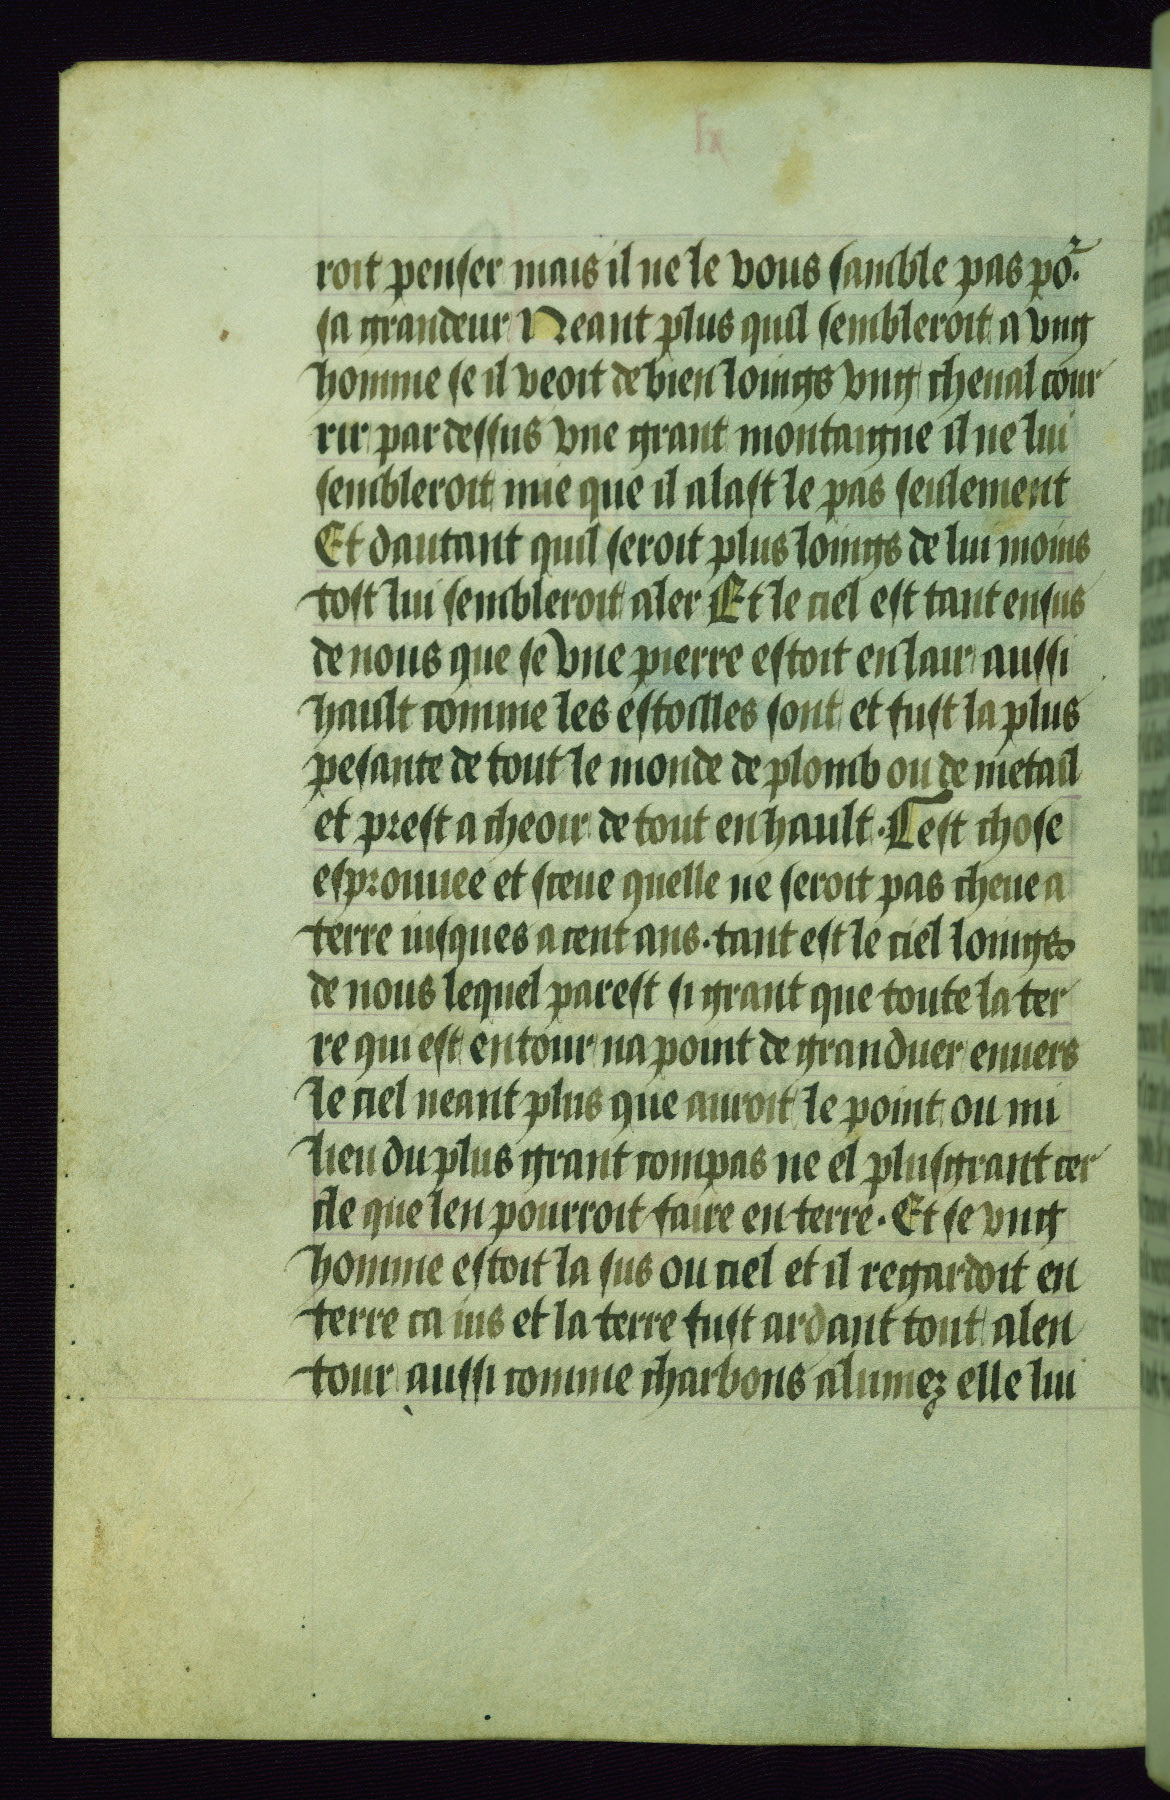 roit penser mais il ne le vous samble pas po.ꝛ
sa grandeur Neant plus quil sembleroit a vng
homme se il veoit de bien loings vng cheual cour
rir par dessus vne grant montaigne il ne lui
sembleroit mie que il alast le pas seulement
Et dautant quil seroit plus loings de lui moins
tost lui sembleroit aler Et le ciel est tant ensus
de nous que se vne pierre estoit en lair aussi
hault comme les estoilles sont et fust la plus
pesante de tout le monde de plomb ou de metail
et prest a cheoir de tout en hault. Cest chose
esprouuee et sceue quelle ne seroit pas cheue a
terre iusques a cent ans. tant est le ciel loings
de nous lequel parest si grant que toute la ter
re qui est entour na point de granduer enuers
le ciel neant plus que auroit le point ou mi
lieu du plus grant compas ne el plus grant cer
cle que len pourroit faire en terre. Et se vng
homme estoit la sus ou ciel et il regardoit en
terre ca ius et la terre fust ardant tout alen
tour aussi comme charbons alumez elle lui